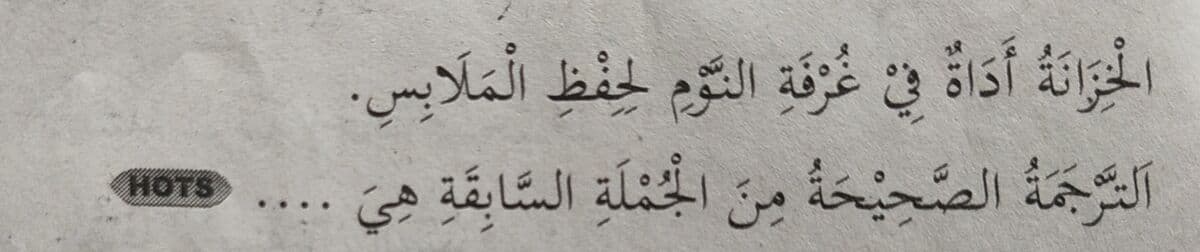 الْخِزَانَةُ أَدَاةٌ فِيْ غُرْفَةِ النَّوْمِ لِحِفْظِ الْمَلَابِسِ.
اَلتَّرْجَمَةُ الصَّحِيْحَةُ مِنَ الْجُمْلَةِ السَّابِقَةِ هِيَ .... HOTS